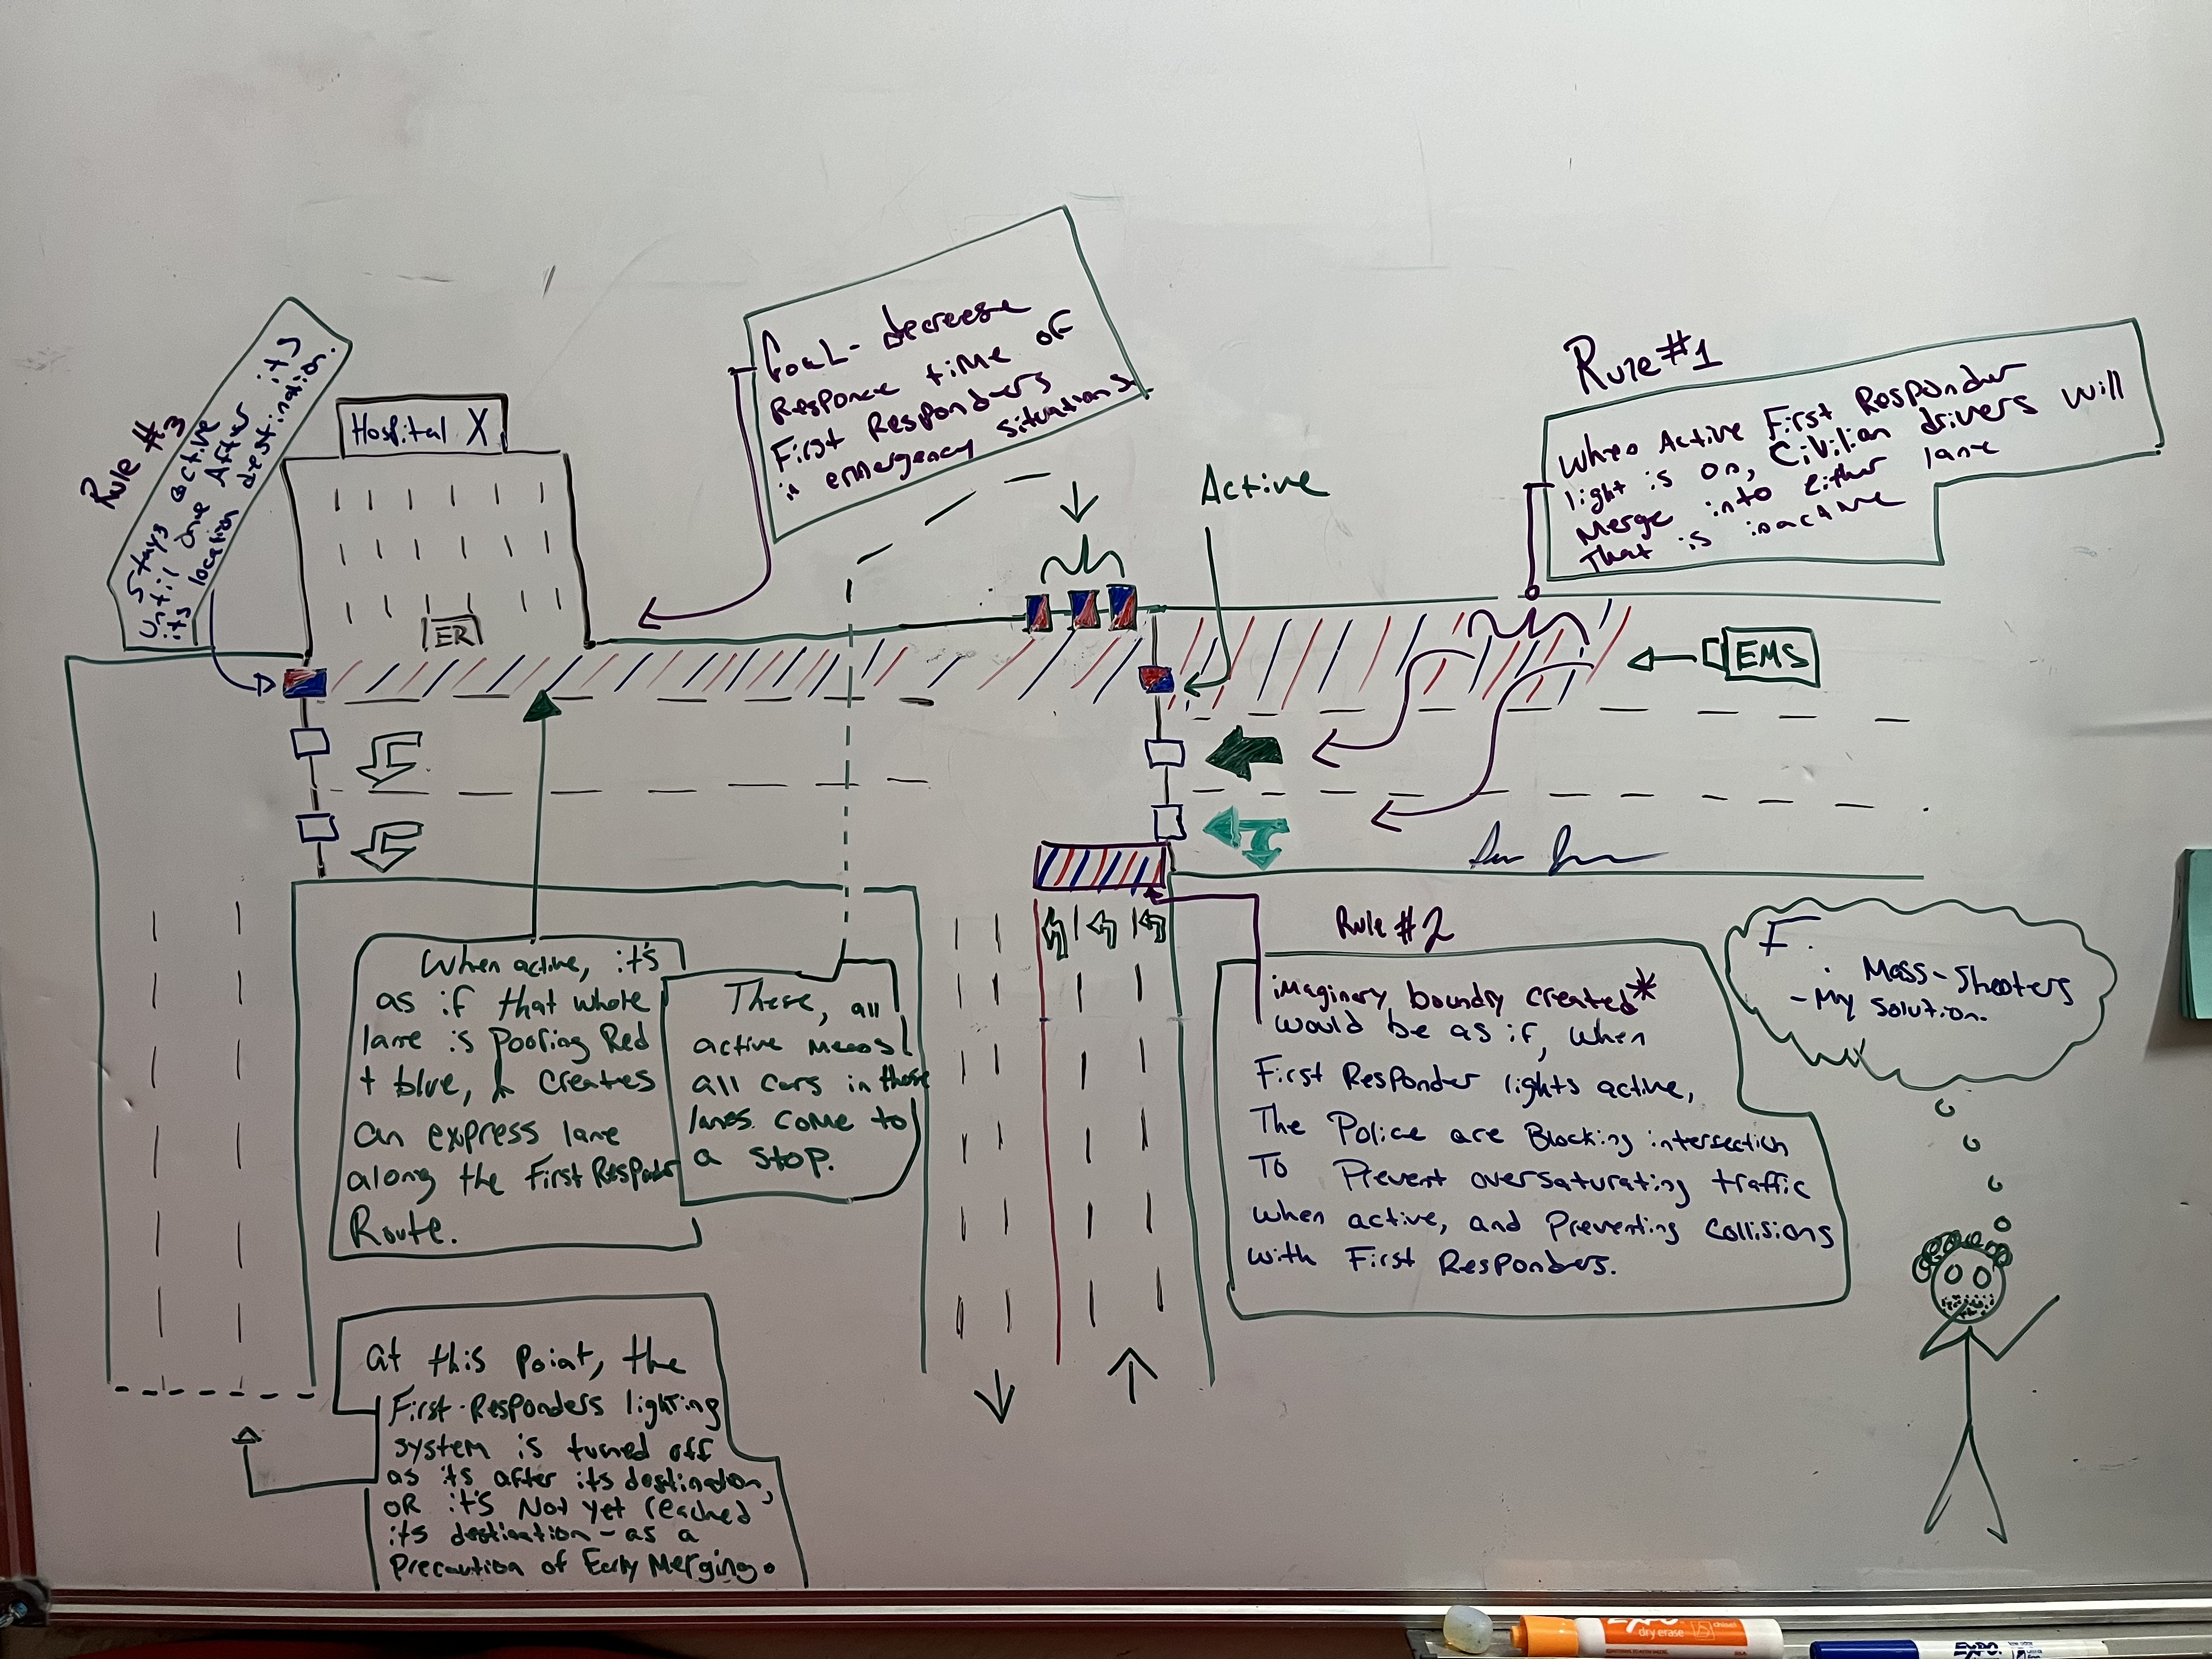 Rule #3
Stays active
until one After its
its location destination.
Hospital X
ER
Goal - decrease
Responce time of
First Responders
in emergency situations
Active
Rule #1
When Active First Responder
light is on, Civilian drivers will
Merge into either lane
That is inactive
EMS
When active, it's
as if that whole
lane is Pooring Red
+ blue, & creates
an express lane
along the First Responder
Route.
These, all
active means
all cars in those
lanes come to
a stop.
Rule #2
imaginary boundry created*
would be as if, when
First Responder lights active,
The Police are Blocking intersection
To Prevent oversaturating traffic
when active, and Preventing Collisions
with First Responders.
F.
: Mass-Shooters
- My solution.
at this Point, the
First-Responders lighting
system is turned off
as its after its destination,
OR it's Not yet reached
its destination - as a
Precaution of Early Merging.
EXPO
dry erase
EXPO